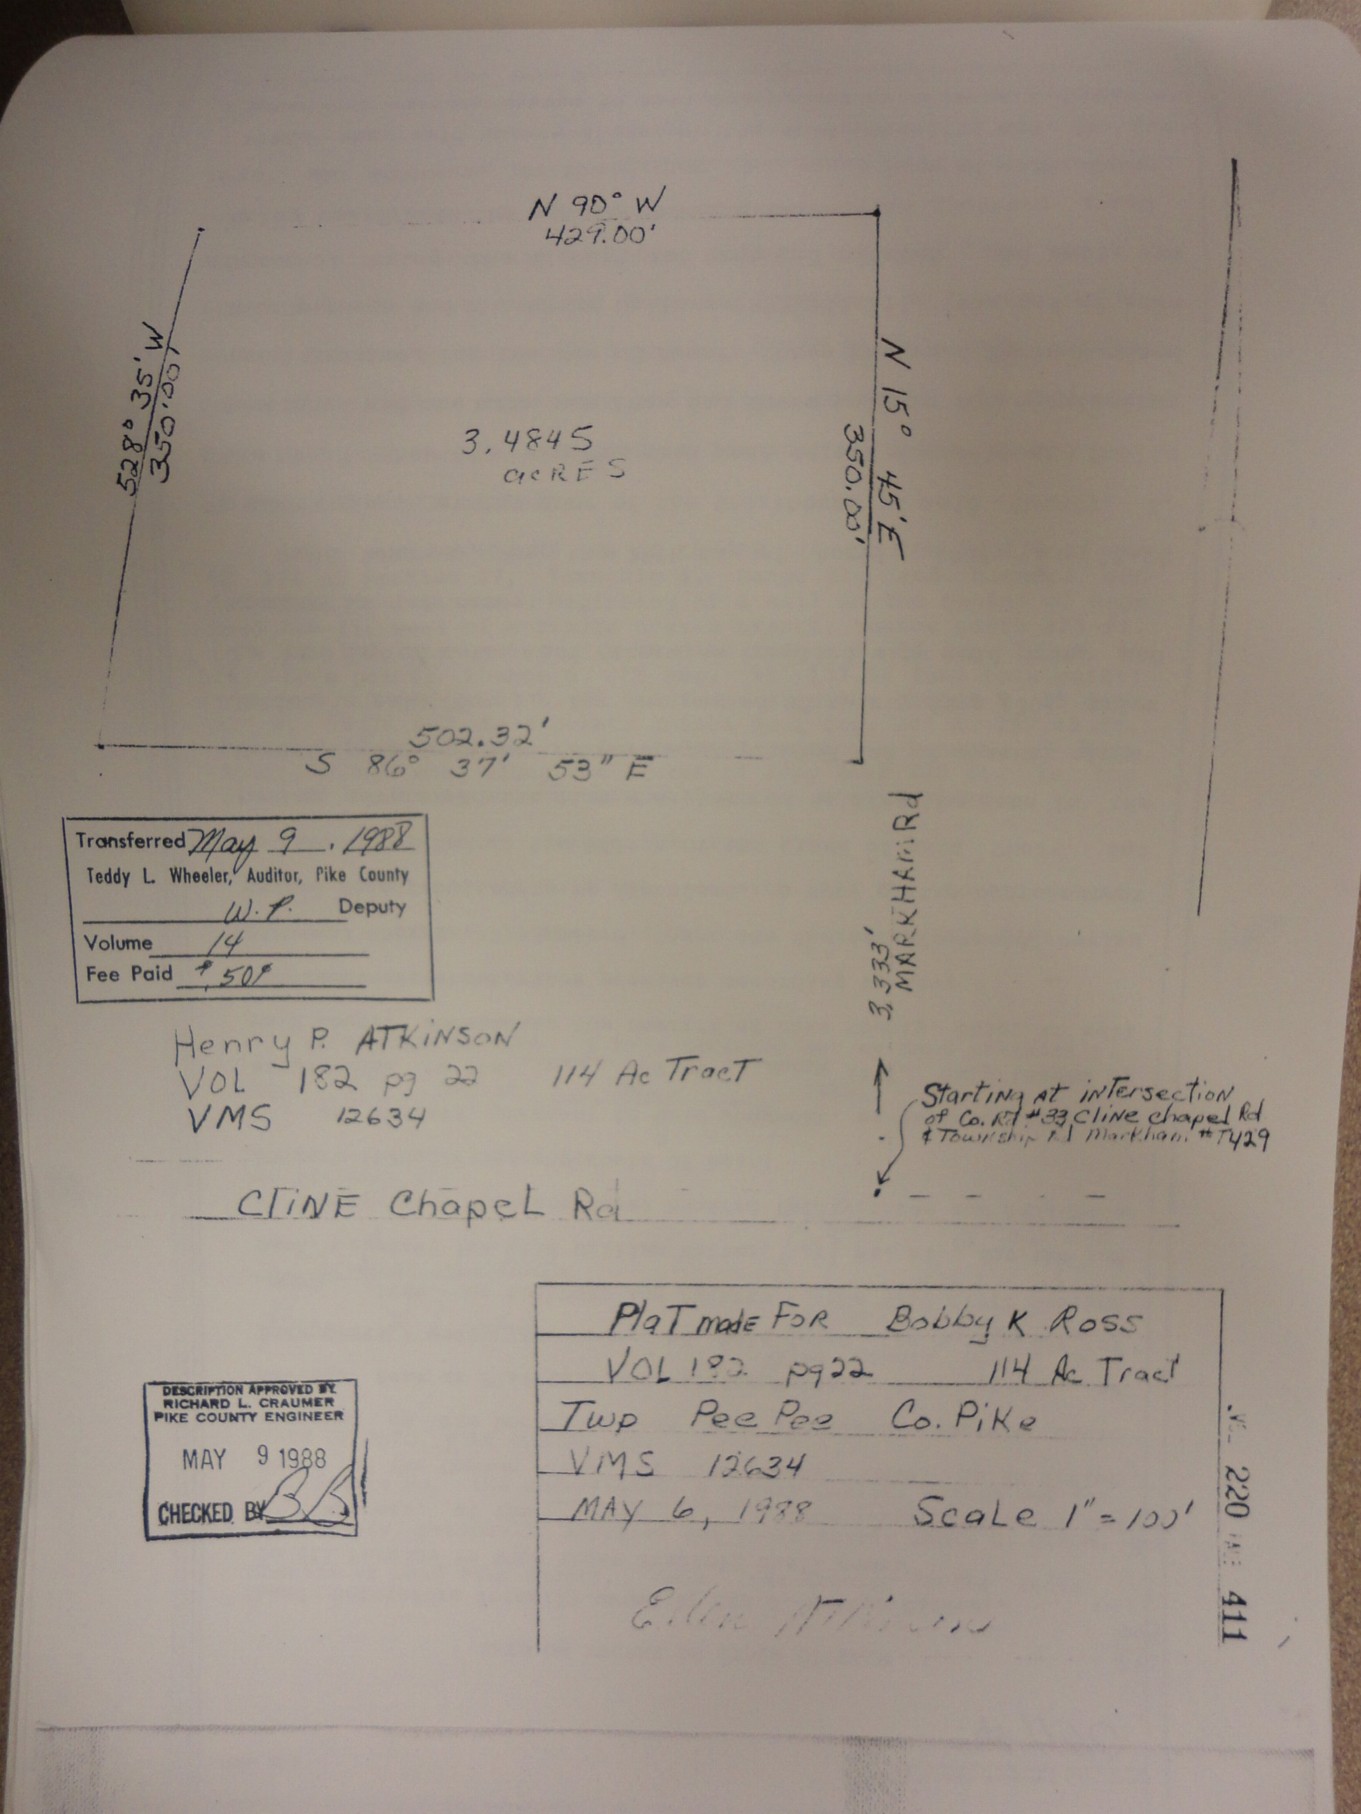 N 90° W
429.00'
S28° 35' W
350.00'
N 15° 45' E
350.00'
3.4845
acRES
502.32'
S 86° 37' 53" E
Transferred May 9, 1988
Teddy L. Wheeler, Auditor, Pike County
W.P. Deputy
Volume 14
Fee Paid $.50¢
3,333'
MARKHAM Rd
Henry P. ATKiNSON
VOL 182 pg 22 114 Ac TracT
VMS 12634
Starting AT inTersection
of Co. Rd #33 Cline chapel Rd
& Township Rd Markham #T429
CLiNE ChapeL Rd
PlaT made FoR Bobby K Ross
VOL 182 pg 22 114 Ac Tract
Twp Pee Pee Co. Pike
VMS 12634
MAY 6, 1988 ScaLe 1" = 100'
DESCRIPTION APPROVED BY
RICHARD L. CRAUMER
PIKE COUNTY ENGINEER
MAY 9 1988
CHECKED BY BB
VOL 220 PAGE 411